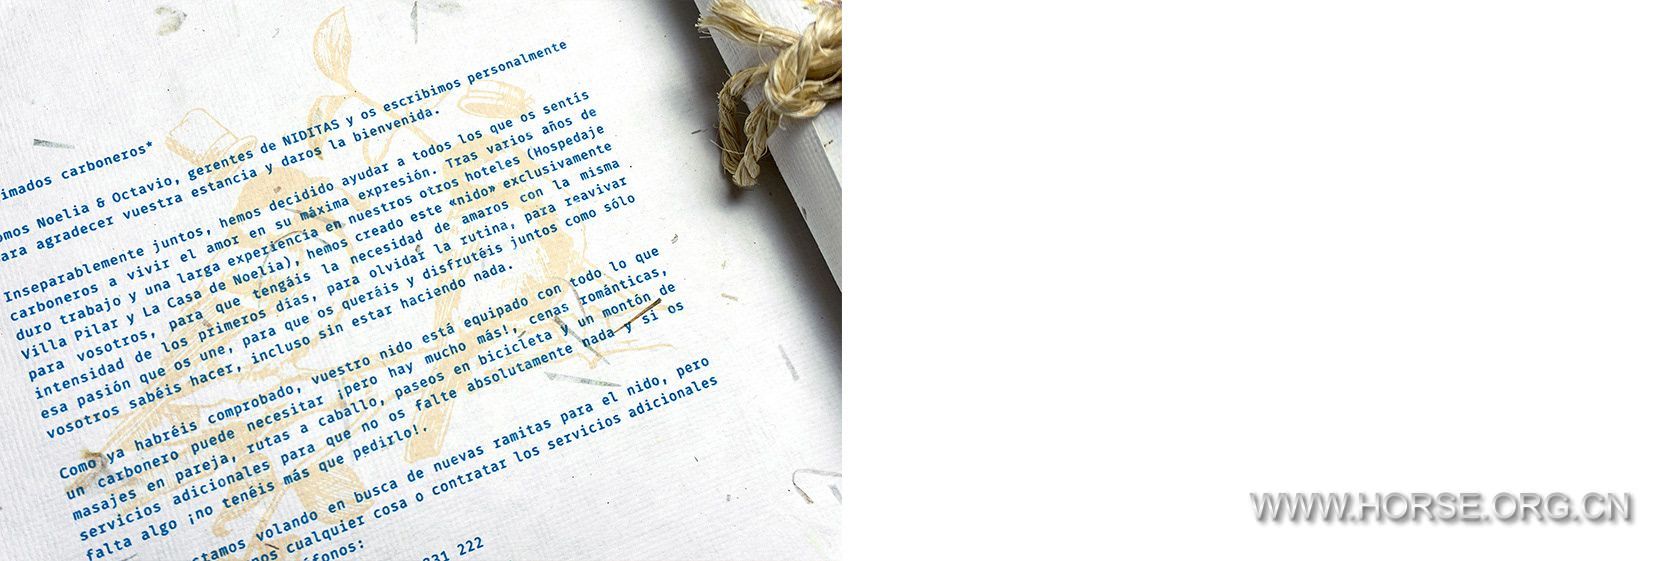 imados carboneros*
omos Noelia & Octavio, gerentes de NIDITAS y os escribimos personalmente
ara agradecer vuestra estancia y daros la bienvenida.
Inseparablemente juntos, hemos decidido ayudar a todos los que os sentís
carboneros a vivir el amor en su máxima expresión. Tras varios años de
duro trabajo y una larga experiencia en nuestros otros hoteles (Hospedaje
Villa Pilar y La Casa de Noelia), hemos creado este «nido» exclusivamente
para vosotros, para que tengáis la necesidad de amaros con la misma
intensidad de los primeros días, para olvidar la rutina, para reavivar
esa pasión que os une, para que os queráis y disfrutéis juntos como sólo
vosotros sabéis hacer, incluso sin estar haciendo nada.
Como ya habréis comprobado, vuestro nido está equipado con todo lo que
un carbonero puede necesitar ¡pero hay mucho más!, cenas románticas,
masajes en pareja, rutas a caballo, paseos en bicicleta y un montón de
servicios adicionales para que no os falte absolutamente nada y si os
falta algo ¡no tenéis más que pedirlo!.
stamos volando en busca de nuevas ramitas para el nido, pero
nos cualquier cosa o contratar los servicios adicionales
éfonos:
331 222
WWW.HORSE.ORG.CN